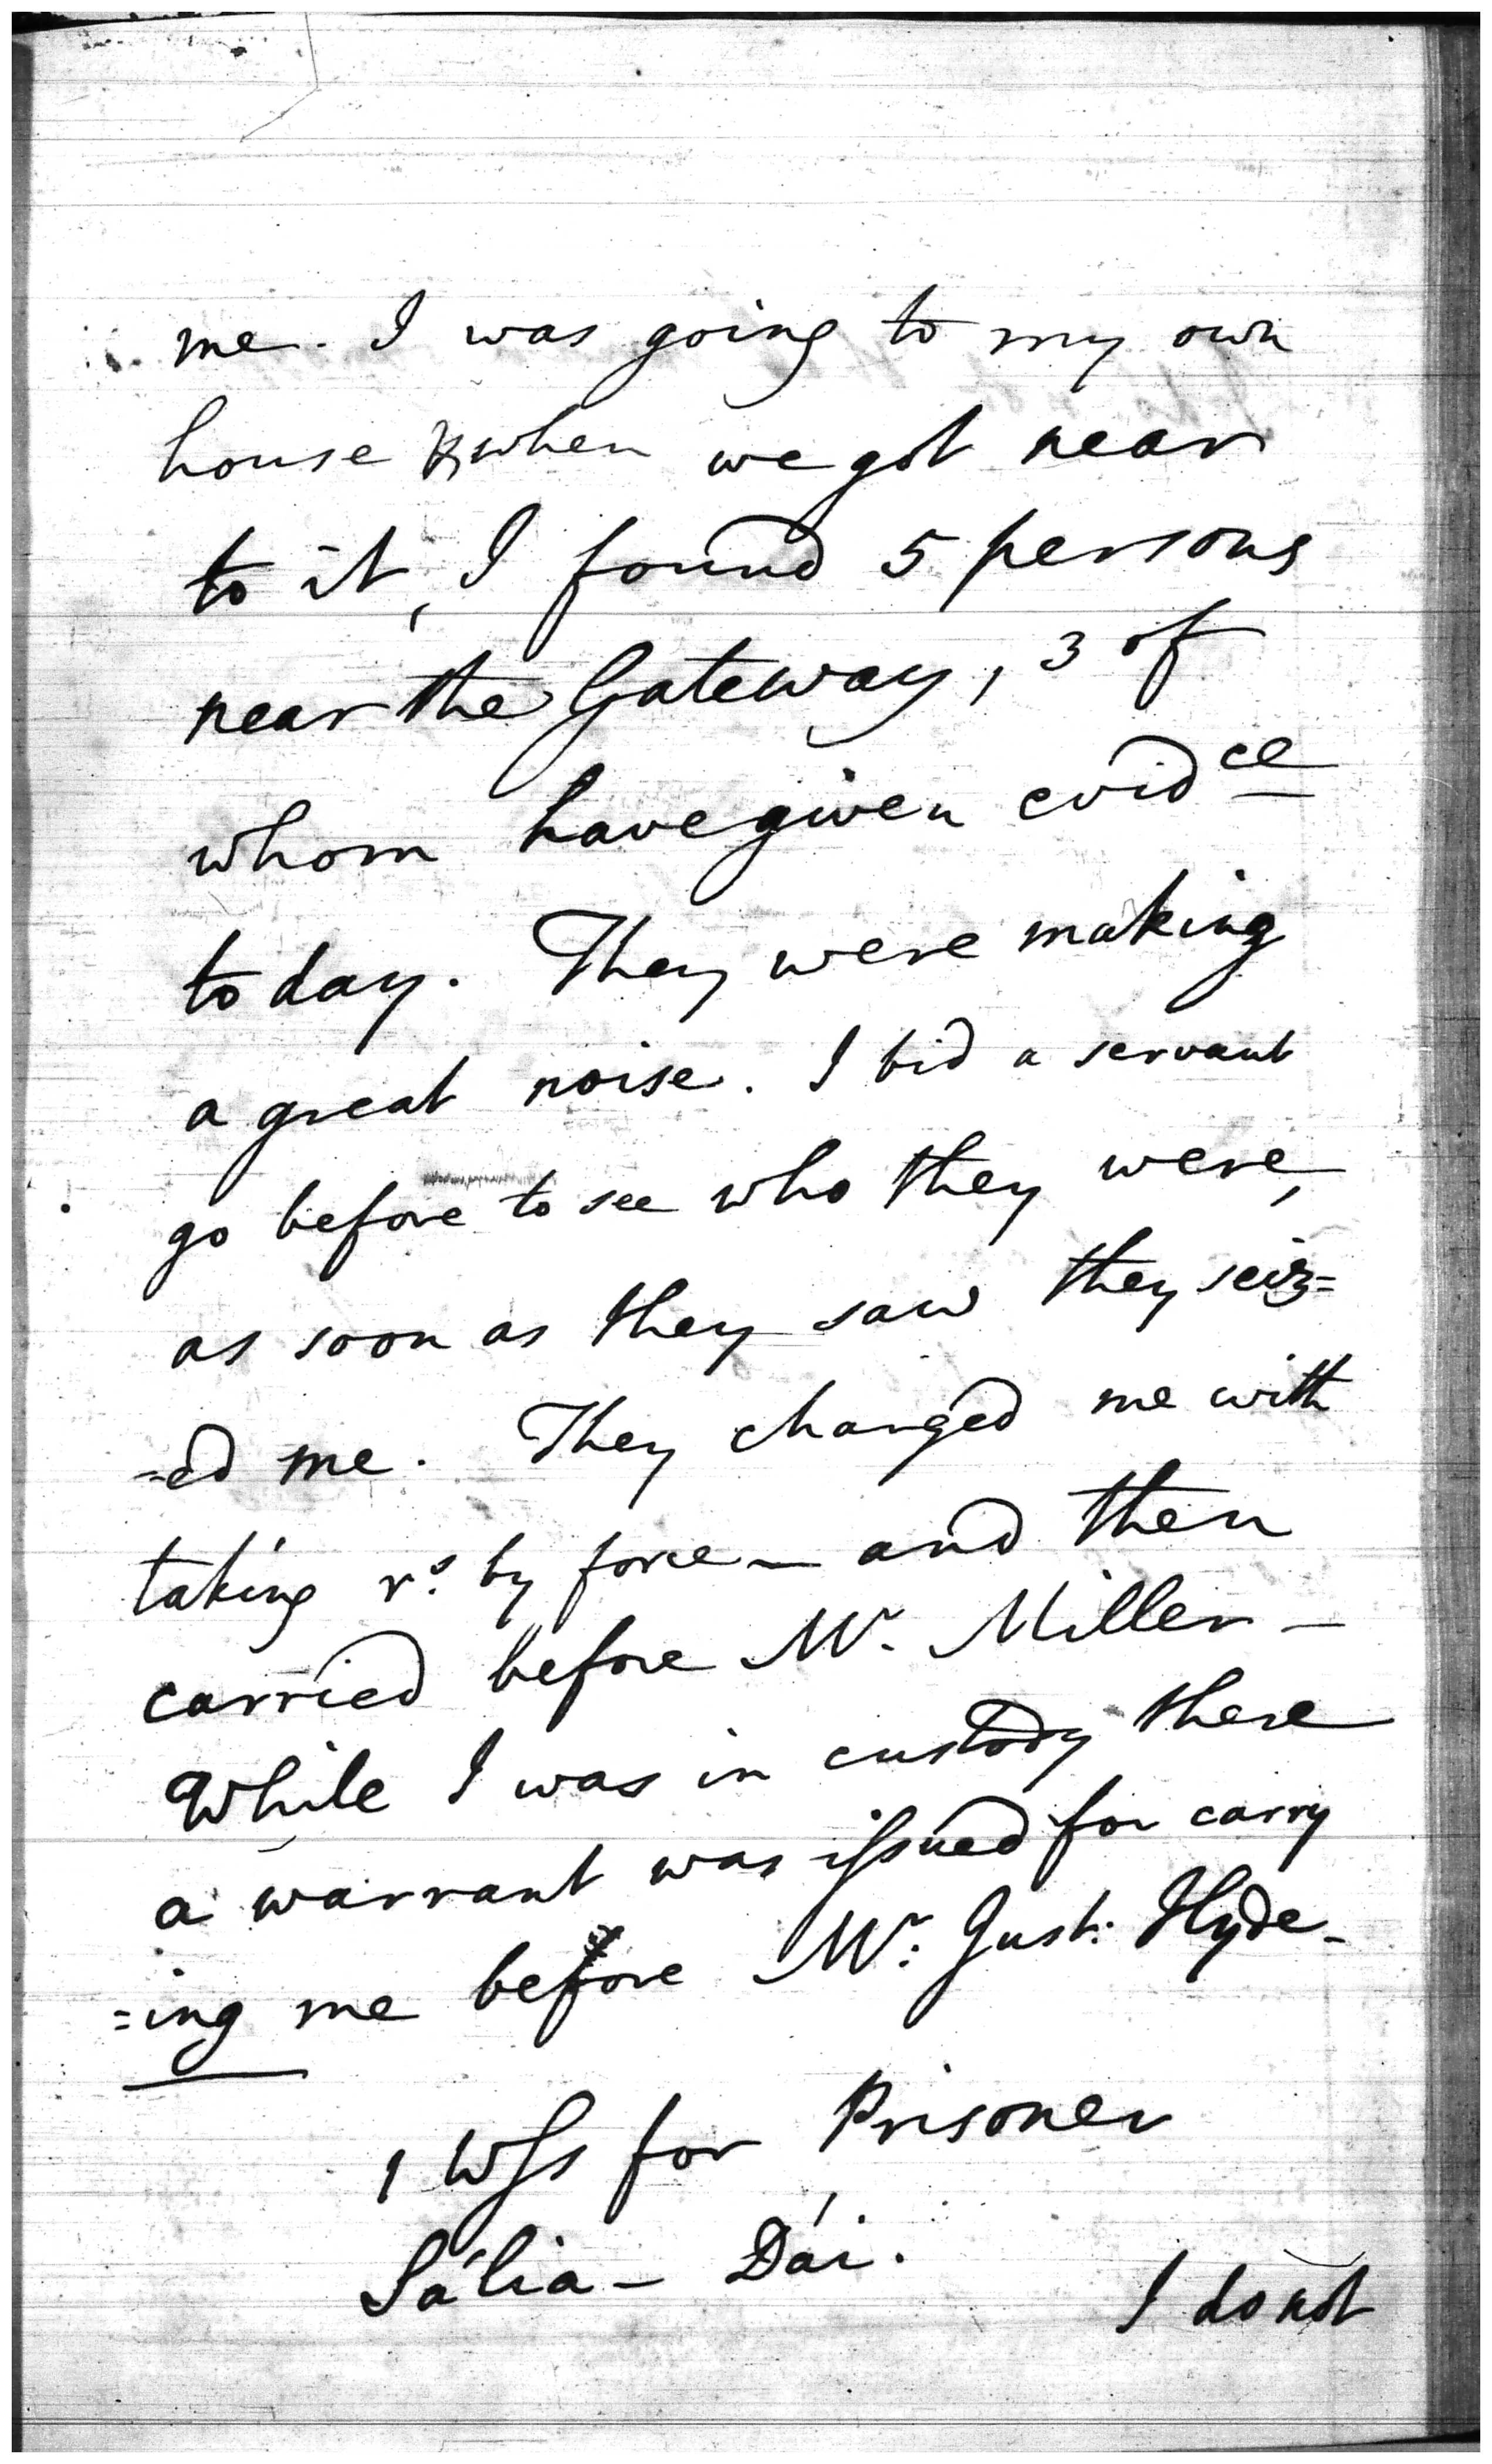 me. I was going to my own
house & when we got near
to it, I found 5 persons
near the Gateway, 3 of
whom have given evidce
to day. They were making
a great noise. I bid a servant
go before to see who they were,
as soon as they saw they seiz=
=ed me. They charged me with
taking rs. by force — and then
carried before Mr. Miller —
While I was in custody there
a warrant was issued for carry
=ing me before Mr. Just: Hyde -
1 Wss for Prisoner
Sália - Dái.
I do not